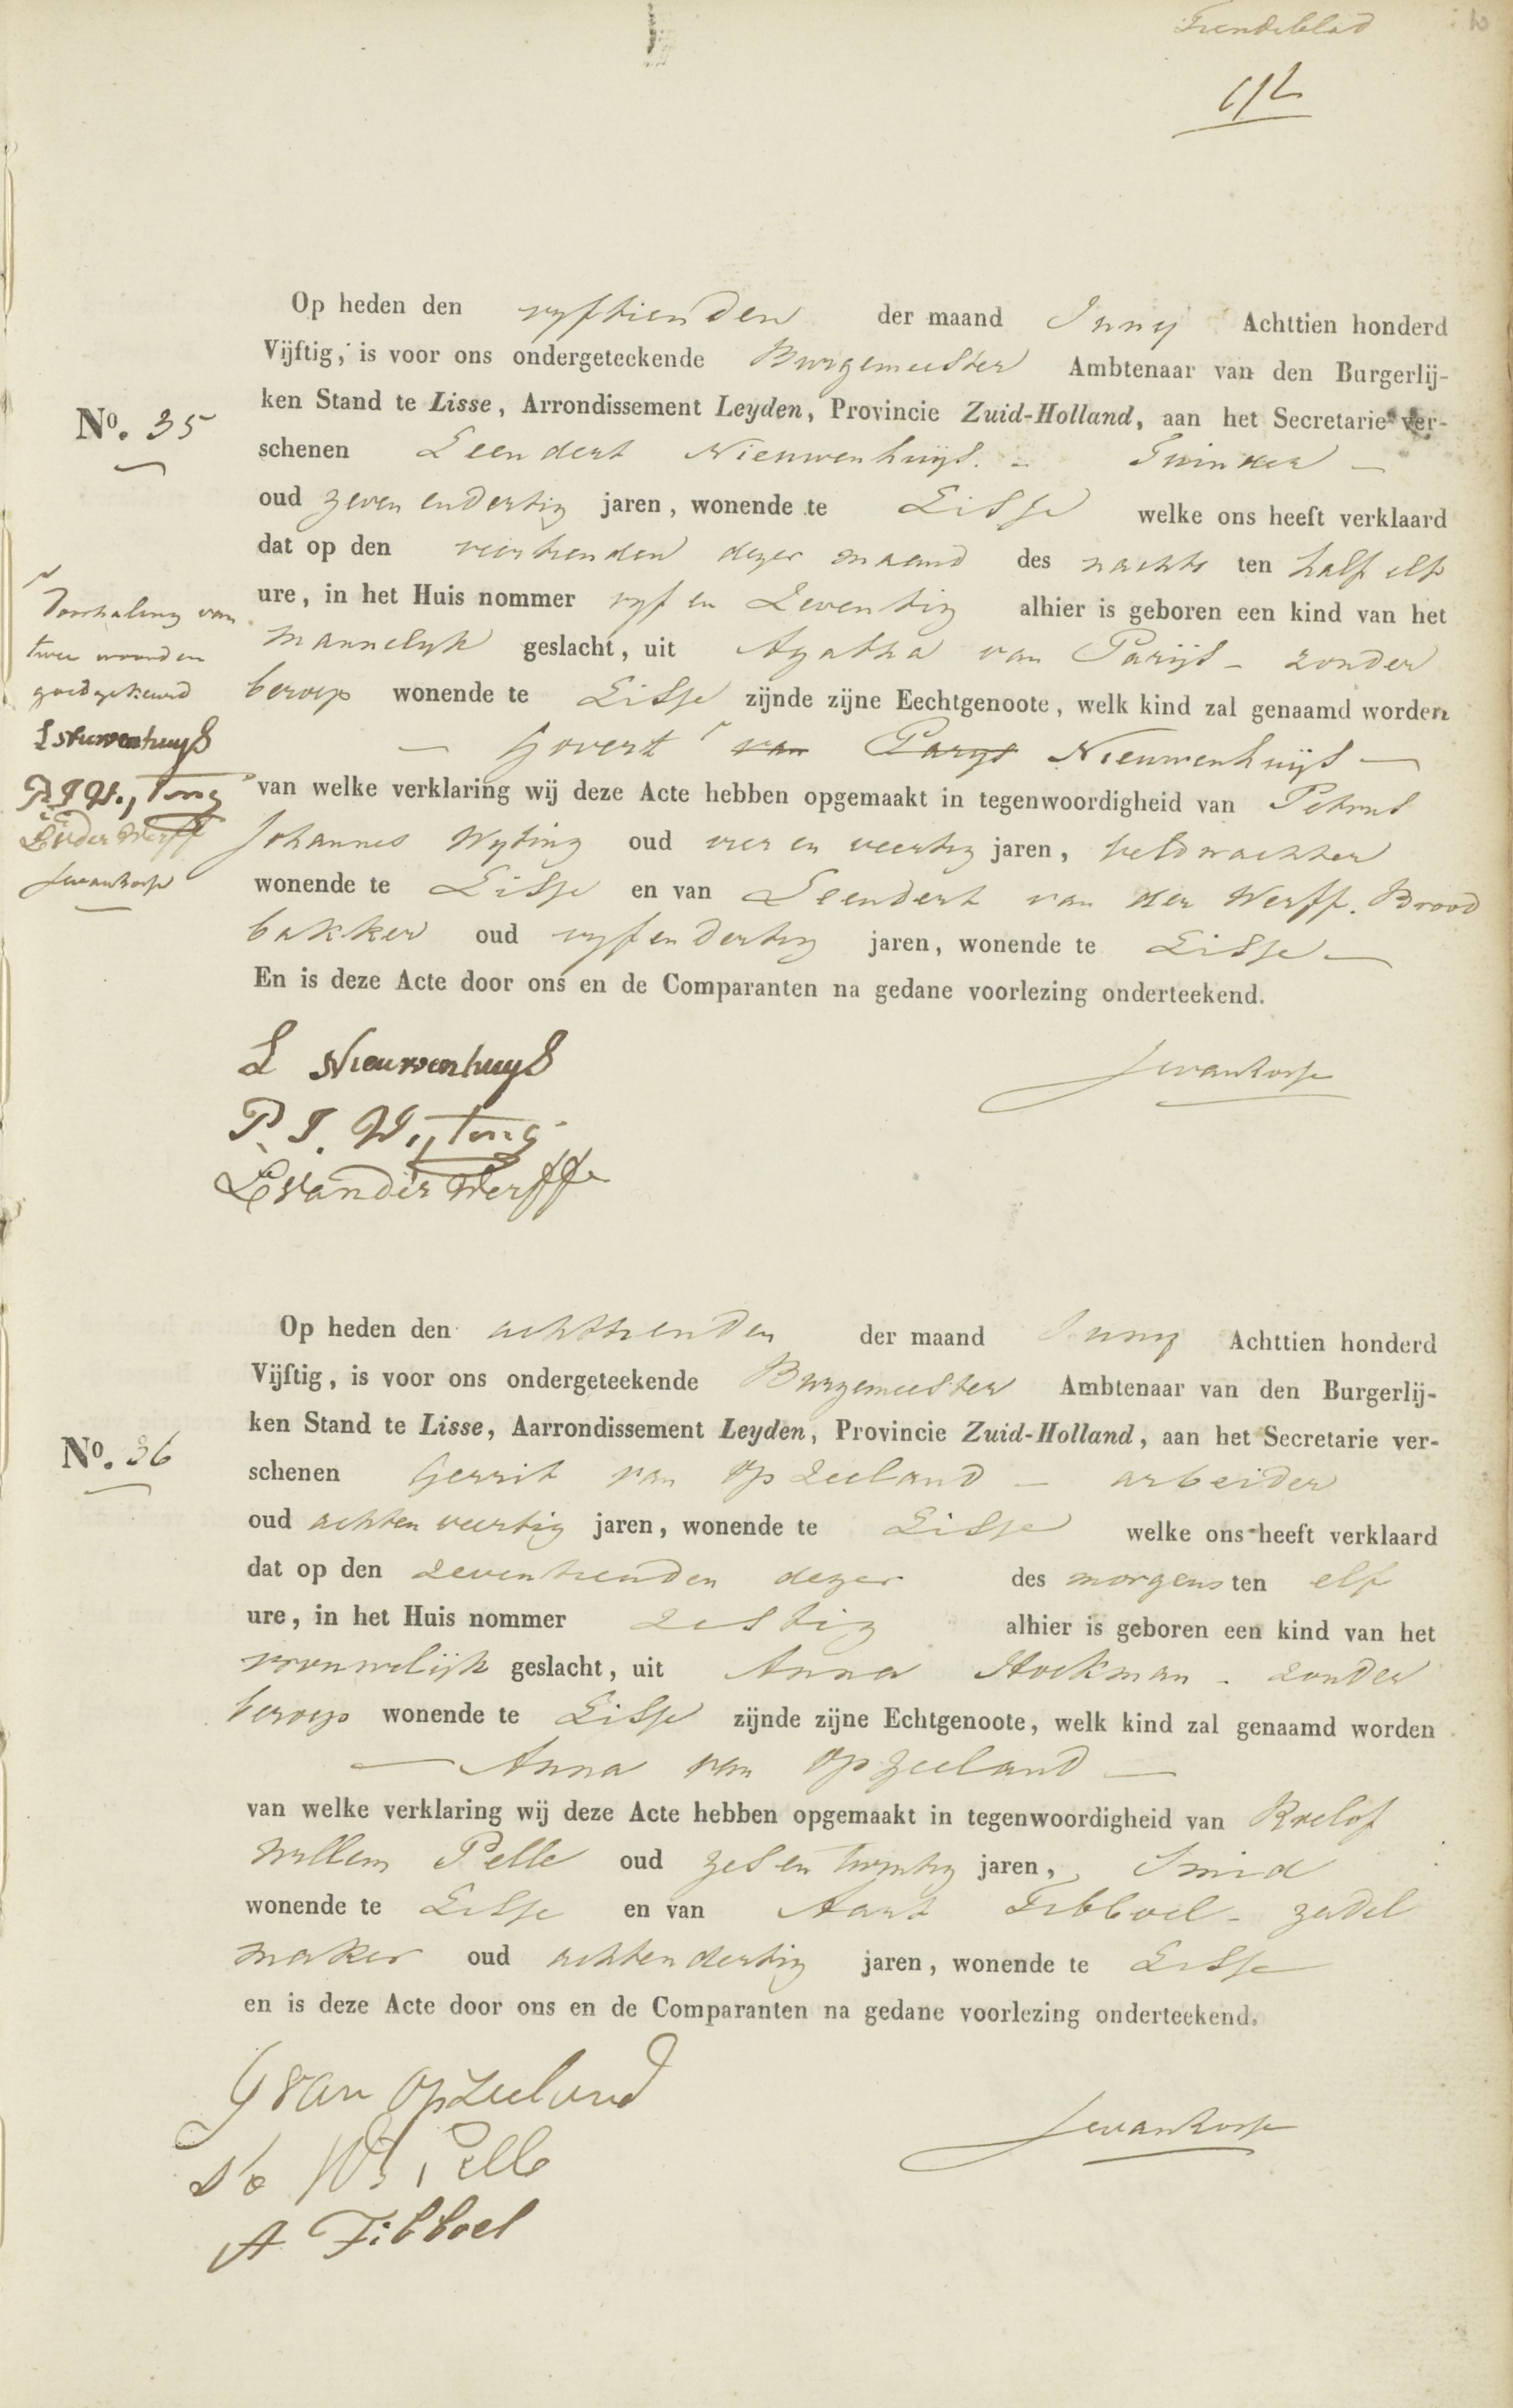 Tiendeblad
Op heden den vyftienden der maand Juny Achttien honderd
Vijftig, is voor ons ondergeteekende Burgemeester Ambtenaar van den Burgerlij-
ken Stand te Lisse, Arrondissement Leyden, Provincie Zuid-Holland, aan het Secretarie ver-
No. 35
schenen Leendert Nieuwenhuijs. - Tuinder -
oud zeven endertig jaren, wonende te Lisse welke ons heeft verklaard
dat op den veertienden dezer maand des nachts ten half elf
ure, in het Huis nommer vyf en Zeventig alhier is geboren een kind van het
mannelyk geslacht, uit Agatha van Parijs - zonder
beroep wonende te Lisse zijnde zijne Eechtgenoote, welk kind zal genaamd worden
- Govert van Parys Nieuwenhuijs -
van welke verklaring wij deze Acte hebben opgemaakt in tegenwoordigheid van Petrus
Johannes Wyting oud vier en veertig jaren, veldwachter
wonende te Lisse en van Leendert van der Werff. Brood
bakker oud vyf en dertig jaren, wonende te Lisse -
En is deze Acte door ons en de Comparanten na gedane voorlezing onderteekend.
Doorhaling van
twee woorden
goedgekeurd
L Nieuwenhuys
P. J. W.ijting
L v der Werff
L Nieuwenhuys
P. J. Wijting
L van der Werff
Op heden den achttienden der maand Juny Achttien honderd
Vijftig, is voor ons ondergeteekende Burgemeester Ambtenaar van den Burgerlij-
ken Stand te Lisse, Aarrondissement Leyden, Provincie Zuid-Holland, aan het Secretarie ver-
No. 36
schenen Gerrit van Opzeeland - arbeider
oud achten veertig jaren, wonende te Lisse welke ons heeft verklaard
dat op den Zeventienden dezer des morgens ten elf
ure, in het Huis nommer Zestig alhier is geboren een kind van het
vrouwelijk geslacht, uit Anna Hoekman - zonder
beroep wonende te Lisse zijnde zijne Echtgenoote, welk kind zal genaamd worden
- Anna van Opzeeland -
van welke verklaring wij deze Acte hebben opgemaakt in tegenwoordigheid van Roelof
Willem Pelle oud zes en twintig jaren, Smid
wonende te Lisse en van Aart Tibboel - zadel
maker oud achten dertig jaren, wonende te Lisse
en is deze Acte door ons en de Comparanten na gedane voorlezing onderteekend.
G van Opzeeland
Pelle
A Tibboel